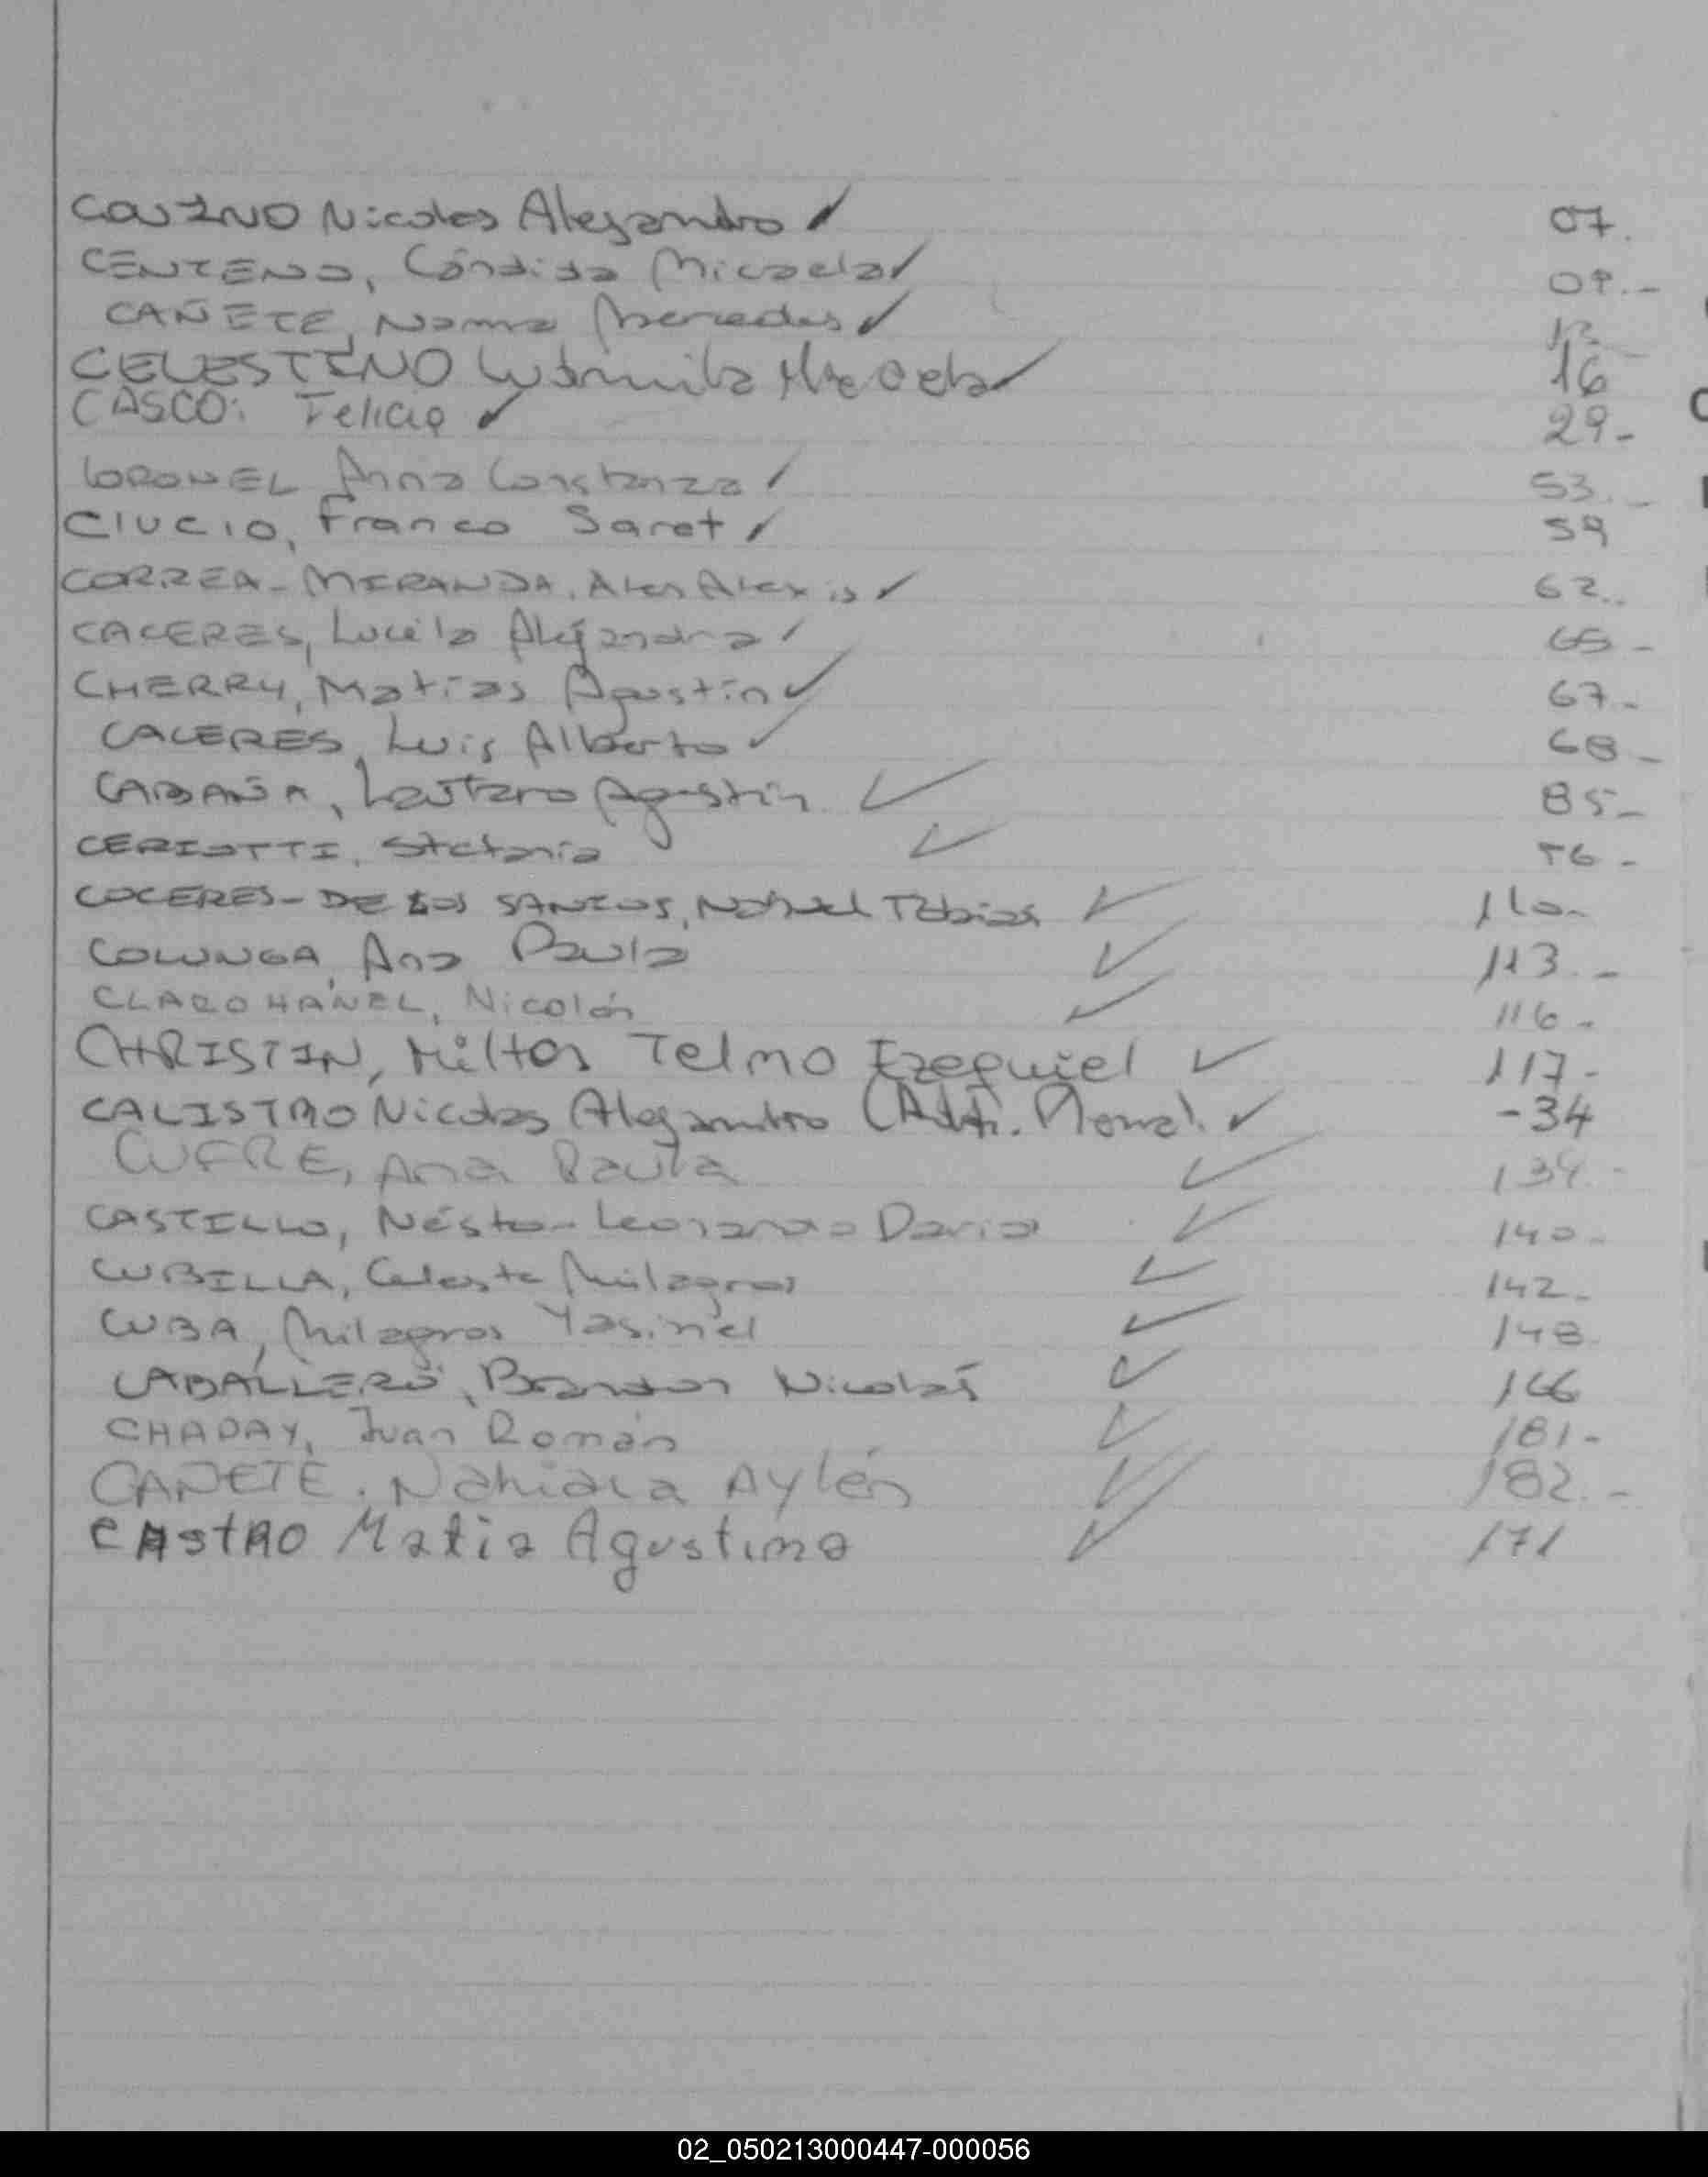 Nicolas Alejandro ✓ 07.
CENTENO, Cándida Micaela ✓ 09.-
CAÑETE, Norma Mercedes ✓ 12
CELESTINO Ludmila Micaela ✓ 16
CASCO: Felicia ✓ 29-
CORONEL Anna Constanza ✓ 53.-
CIUCIO, Franco Saret ✓ 59
CORREA-MIRANDA, Alex Alexis ✓ 62..
CACERES, Lucila Alejandra ✓ 65-
CHERRY, Matías Agustín ✓ 67-
CACERES, Luis Alberto ✓ 68-
CABAÑA, Lautaro Agustín ✓ 85-
CERIOTTI, Stefanía ✓
COCERES-DE LOS SANTOS, Nahuel Tobias ✓ 110-
COLUNGA, Ana Paula ✓ 113.-
CLARO HANEL, Nicolás ✓ 116-
CHRISTIN, Milton Telmo Ezequiel ✓ 117-
CALISTRO Nicolas Alejandro ✓ -34
CUFRE, Ana Paula ✓ 134.-
CASTILLO, Néstor Leonardo Dario ✓ 140-
CUBILLA, Celeste Milagros ✓ 142-
CUBA, Milagros Yasinel ✓ 148-
CABALLERO, Brandon Nicolás ✓ 166
CHAPAY, Juan Román ✓ 181-
CAÑETE, Nahiara Aylén ✓ 182.-
CASTRO Matia Agustina ✓ 171
02_050213000447-000056